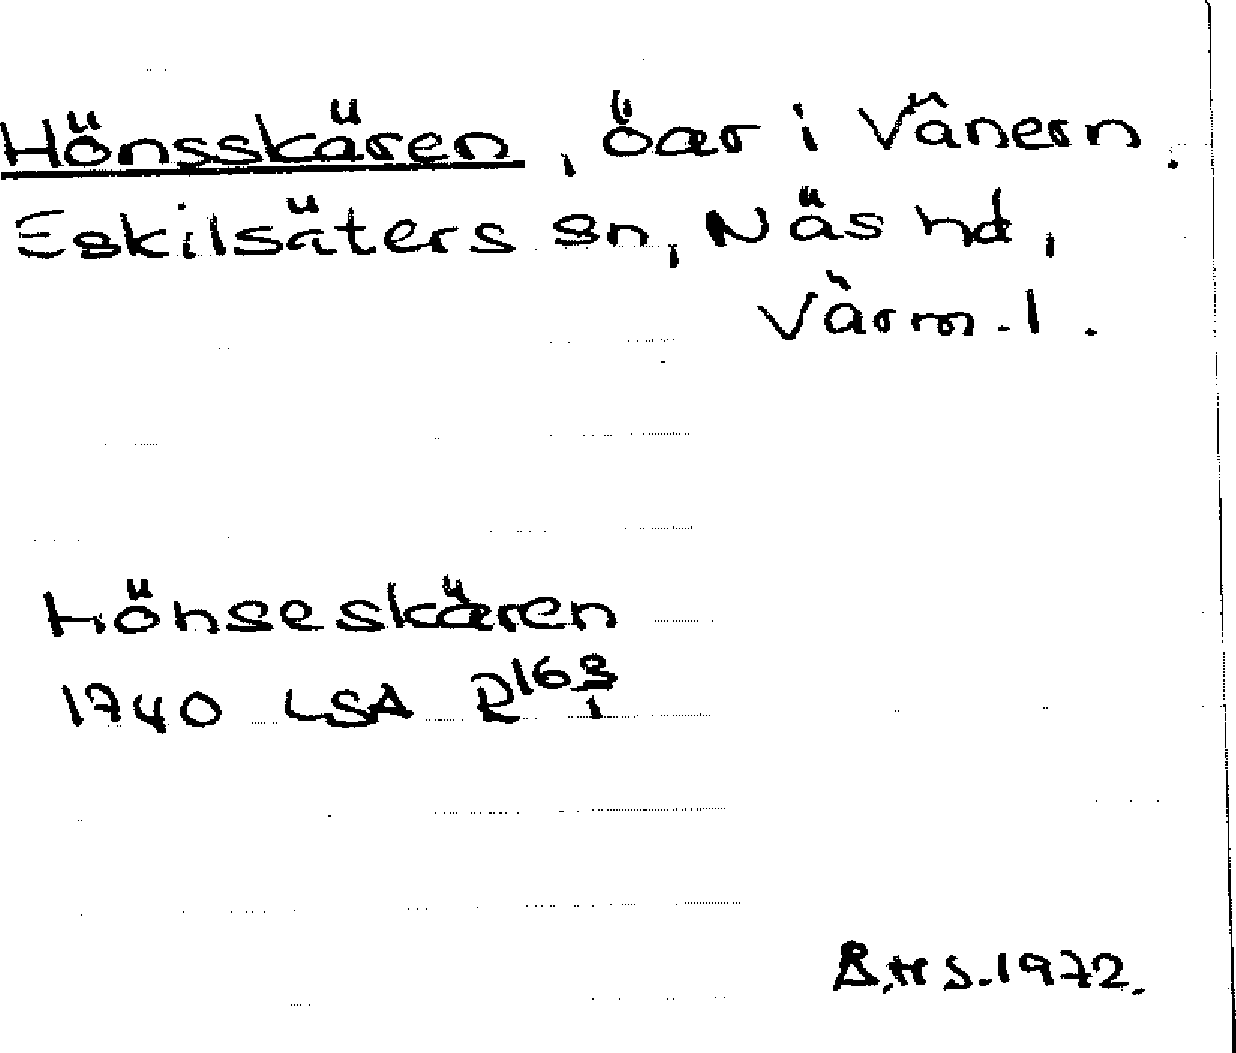 Hönsskären, öar i Vänern.
Eskilsäters sn, Näs hd,
Värm. l.
Hönseskären
1740 LSA R 163/1
Å.H S. 1972.